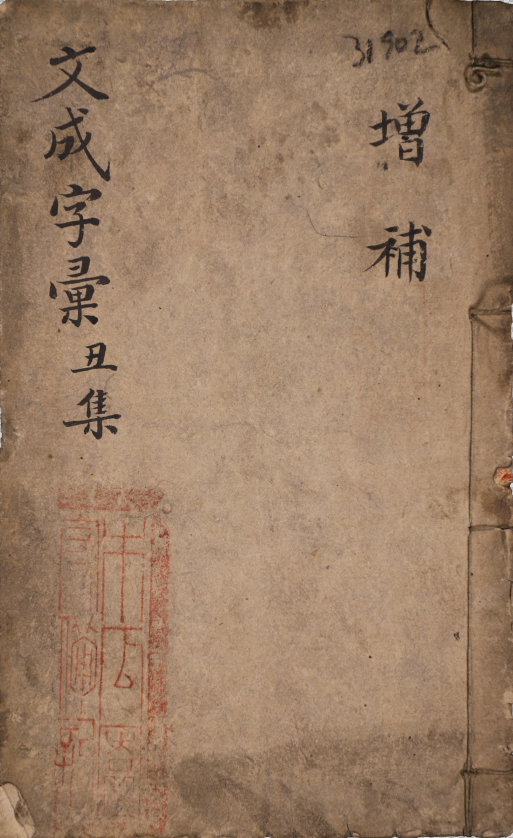 31902
增
補
文成字彙丑集